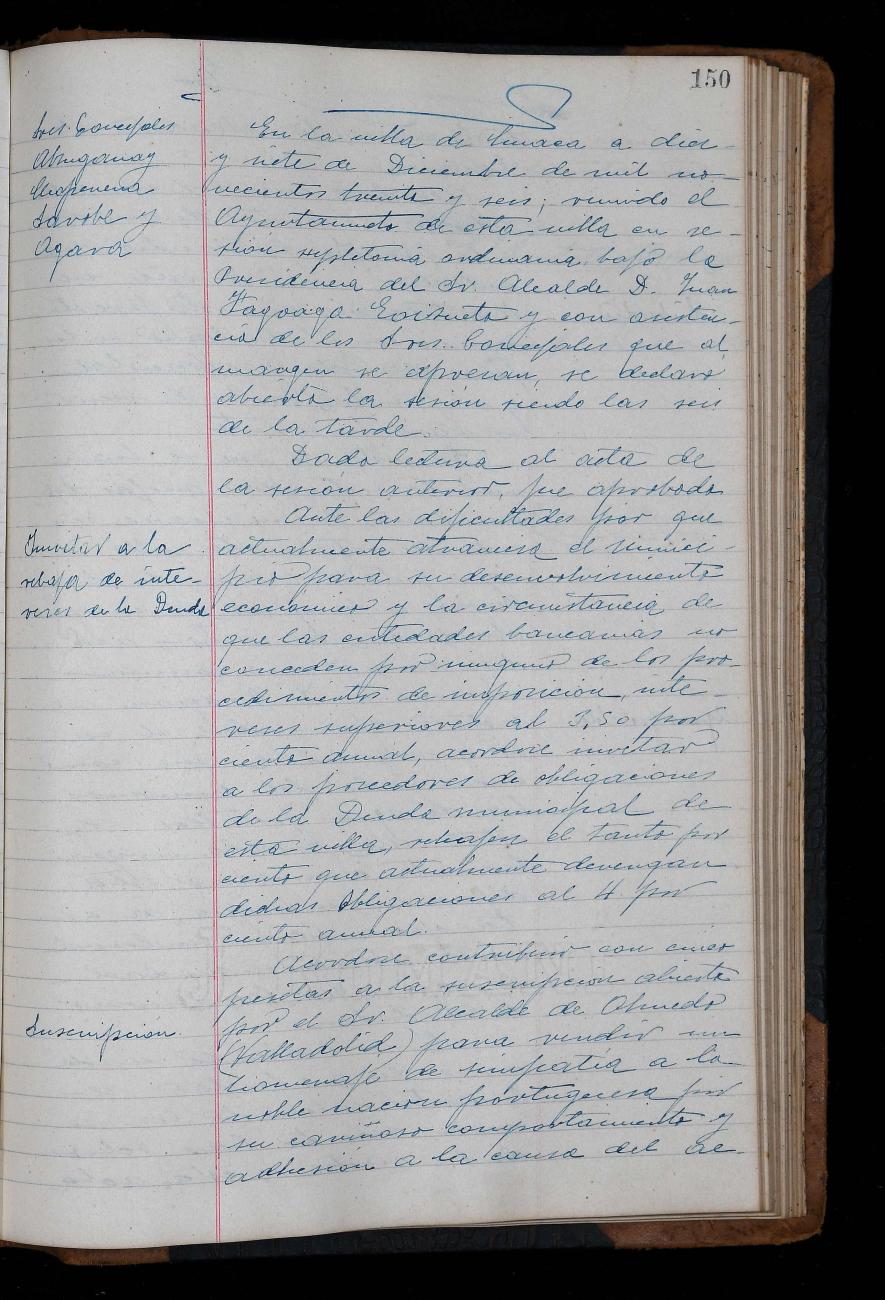 150
Sres. Concejales
Aranguena
Larobe y
Agara
En la villa de Linaca a diez
y siete de Diciembre de mil no-
vecientos treinta y seis; reunido el
Ayuntamiento de esta villa en se-
sion supletoria ordinaria, bajo la
Presidencia del Sr. Alcalde D. Juan
Fagoaga y con asisten-
cia de los Sres. Concejales que al
margen se expresan, se declaró
abierta la sesión siendo las seis
de la tarde.
Dada lectura al acta de
la sesión anterior, fue aprobada
Invitar a la
rebaja de inte-
reses de la Deuda
Ante las dificultades por que
actualmente atraviesa el Munici-
pio para su desenvolvimiento
economico y la circunstancia de
que las entidades bancarias no
conceden por ninguno de los pro-
cedimientos de imposicion, inte-
reses superiores al 3,50 por
ciento anual, acordose invitar
a los poseedores de obligaciones
de la Deuda municipal de
esta villa, rebajen el tanto por
ciento que actualmente devengan
dichas obligaciones al 4 por
ciento anual.
Suscripción
Acordose contribuir con cinco
pesetas a la suscripcion abierta
por el Sr. Alcalde de Olmedo
(Valladolid) para rendir un
homenaje de simpatía a la
noble nacion portuguesa por
su cariñoso comportamiento y
adhesión a la causa del ac-